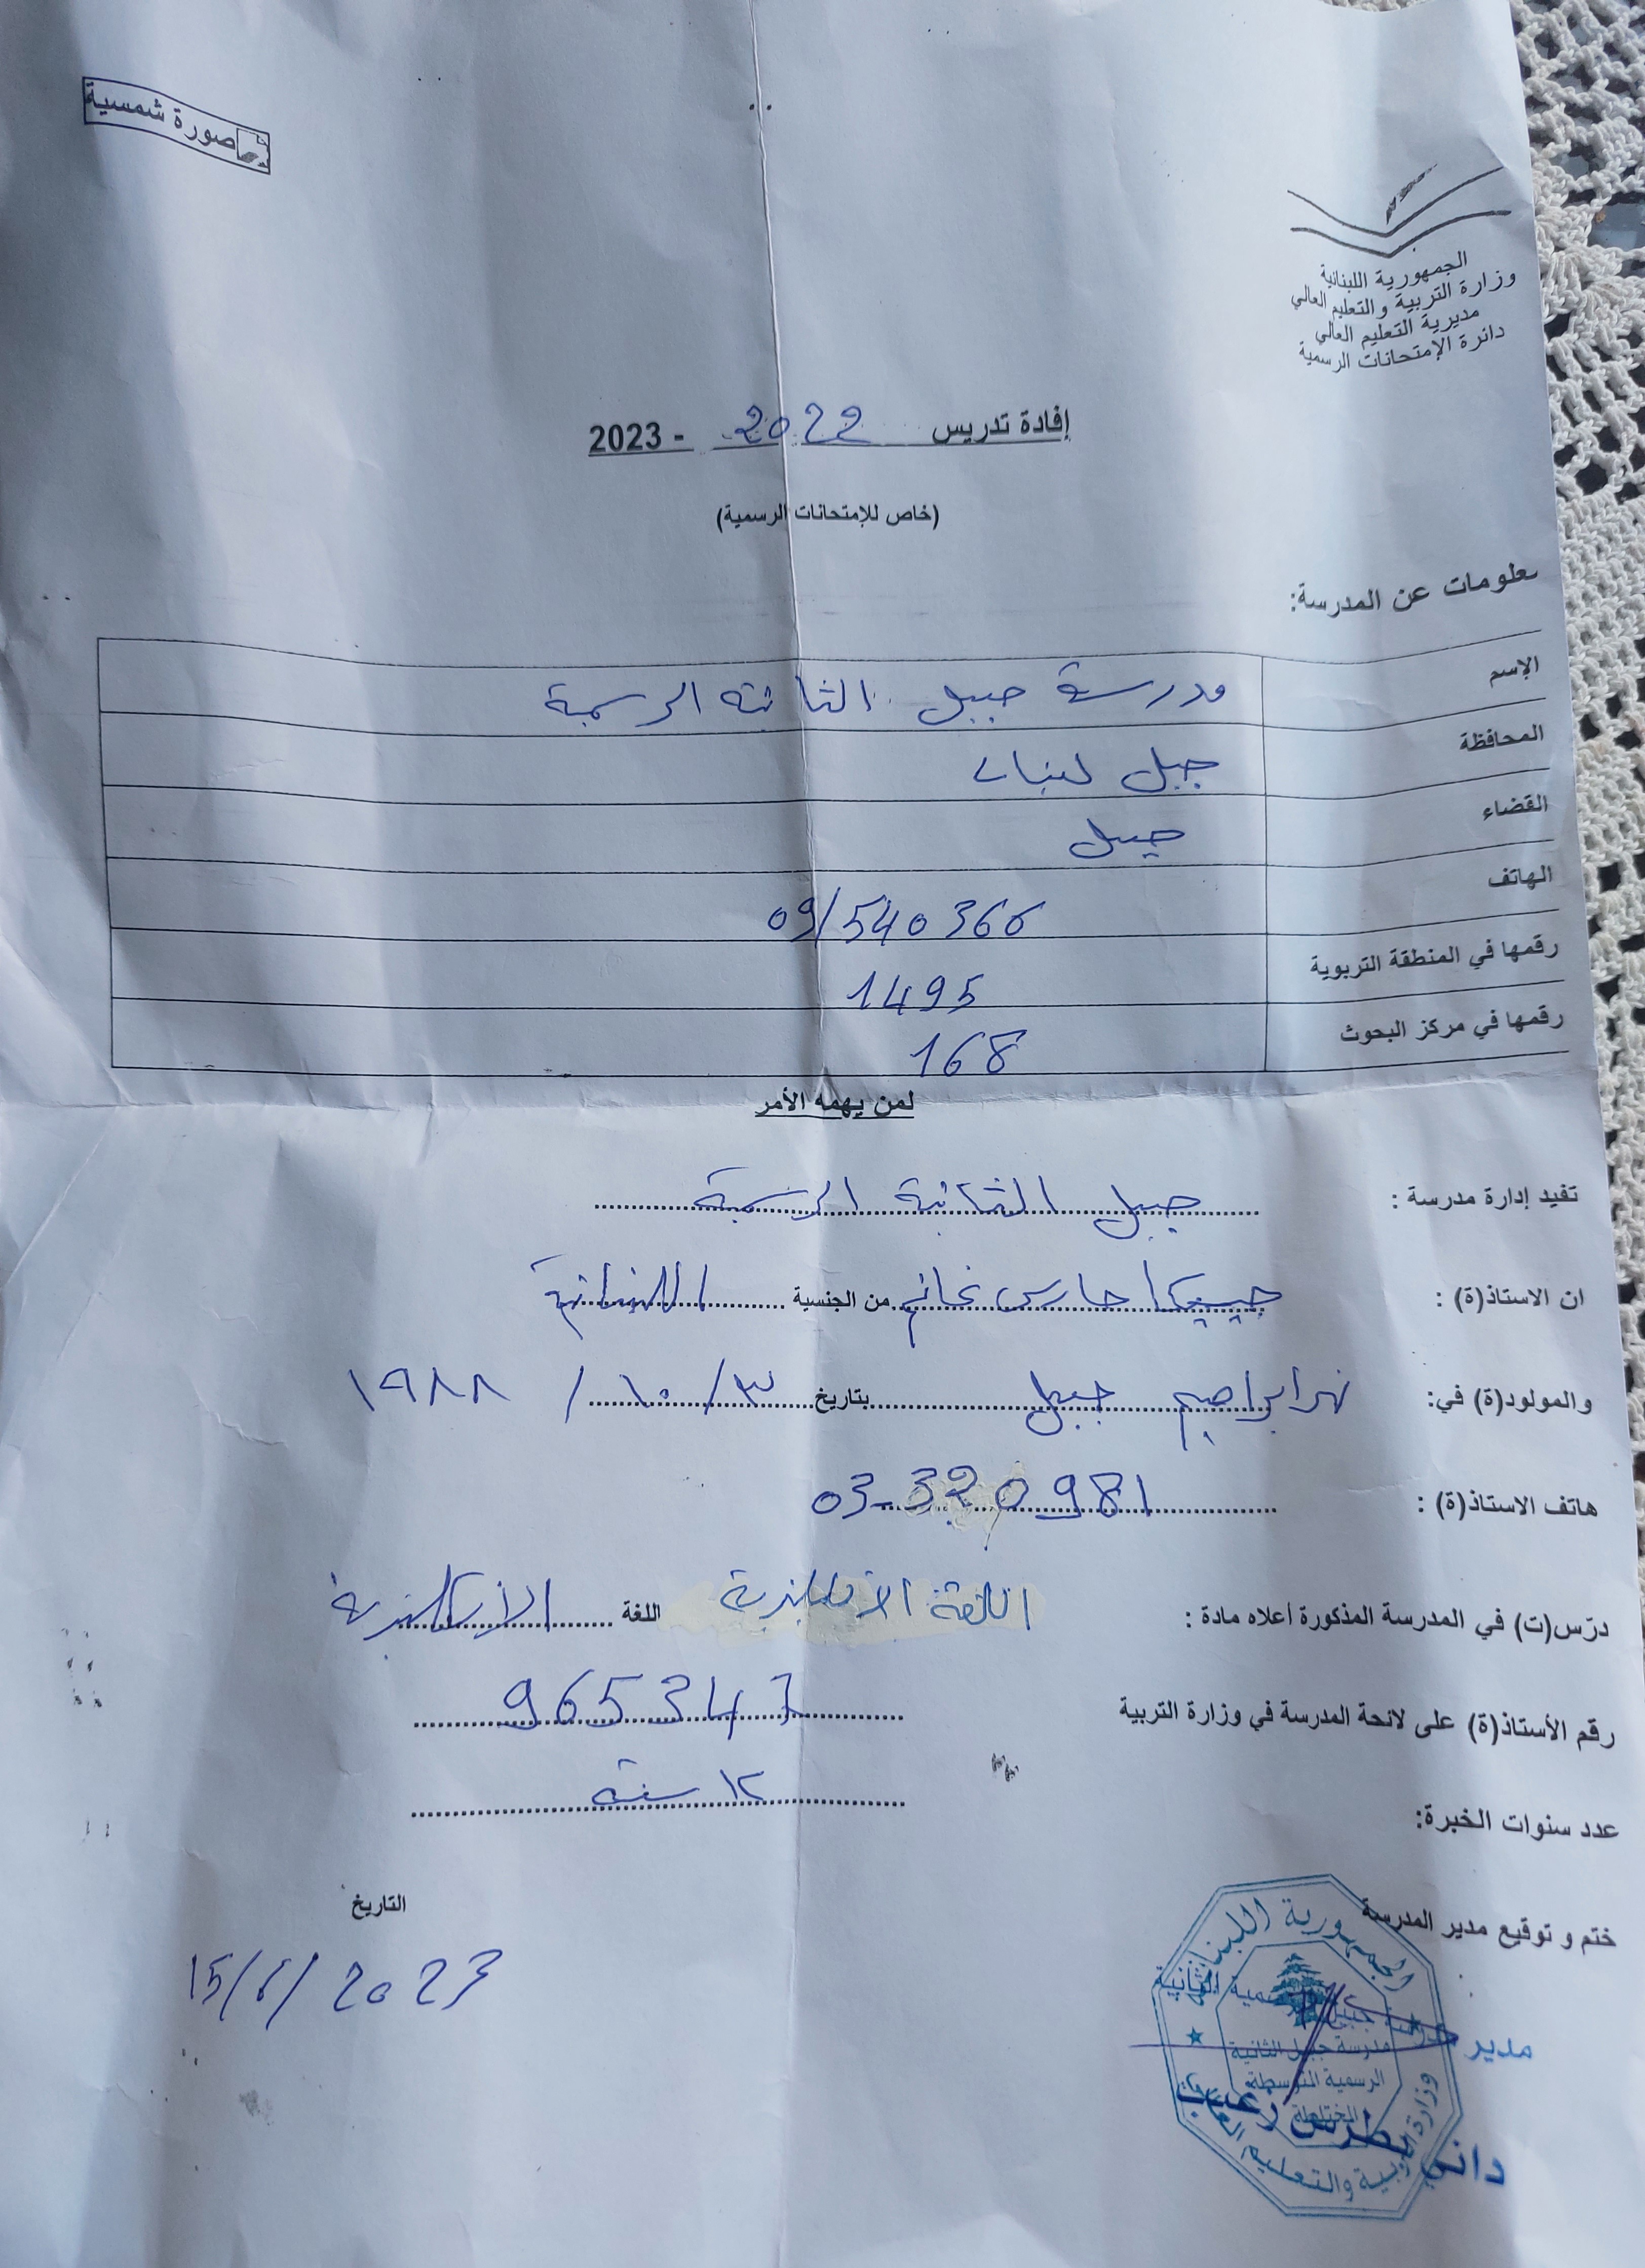 صورة شمسية
الجمهورية اللبنانية
وزارة التربية والتعليم العالي
مديرية التعليم العالي
دائرة الإمتحانات الرسمية
إفادة تدريس 2022 - 2023
(خاص للإمتحانات الرسمية)
معلومات عن المدرسة:
الإسم مدرسة جبيل الثانية الرسمية
المحافظة جبل لبنان
القضاء جبيل
الهاتف 09/540366
رقمها في المنطقة التربوية 1495
رقمها في مركز البحوث 168
لمن يهمه الأمر
تفيد إدارة مدرسة : جبيل الثانية الرسمية
ان الاستاذ(ة) : جيسيكا حارس غانم من الجنسية اللبنانية
والمولود(ة) في: نهر ابراهيم جبيل بتاريخ ٣/ ١٠ / ١٩٨٨
هاتف الاستاذ(ة) : 03-320981
درّس(ت) في المدرسة المذكورة اعلاه مادة : اللغة الانكليزية اللغة الانكليزية
رقم الأستاذ(ة) على لائحة المدرسة في وزارة التربية 965347
عدد سنوات الخبرة: ١٢ سنة
ختم و توقيع مدير المدرسة
التاريخ
15/6/2023
الجمهورية اللبنانية
وزارة التربية والتعليم العالي
مدرسة جبيل الثانية
الرسمية المتوسطة
المختلطة
مدير مدرسة جبيل الرسمية الثانية
داني بطرس زعيب